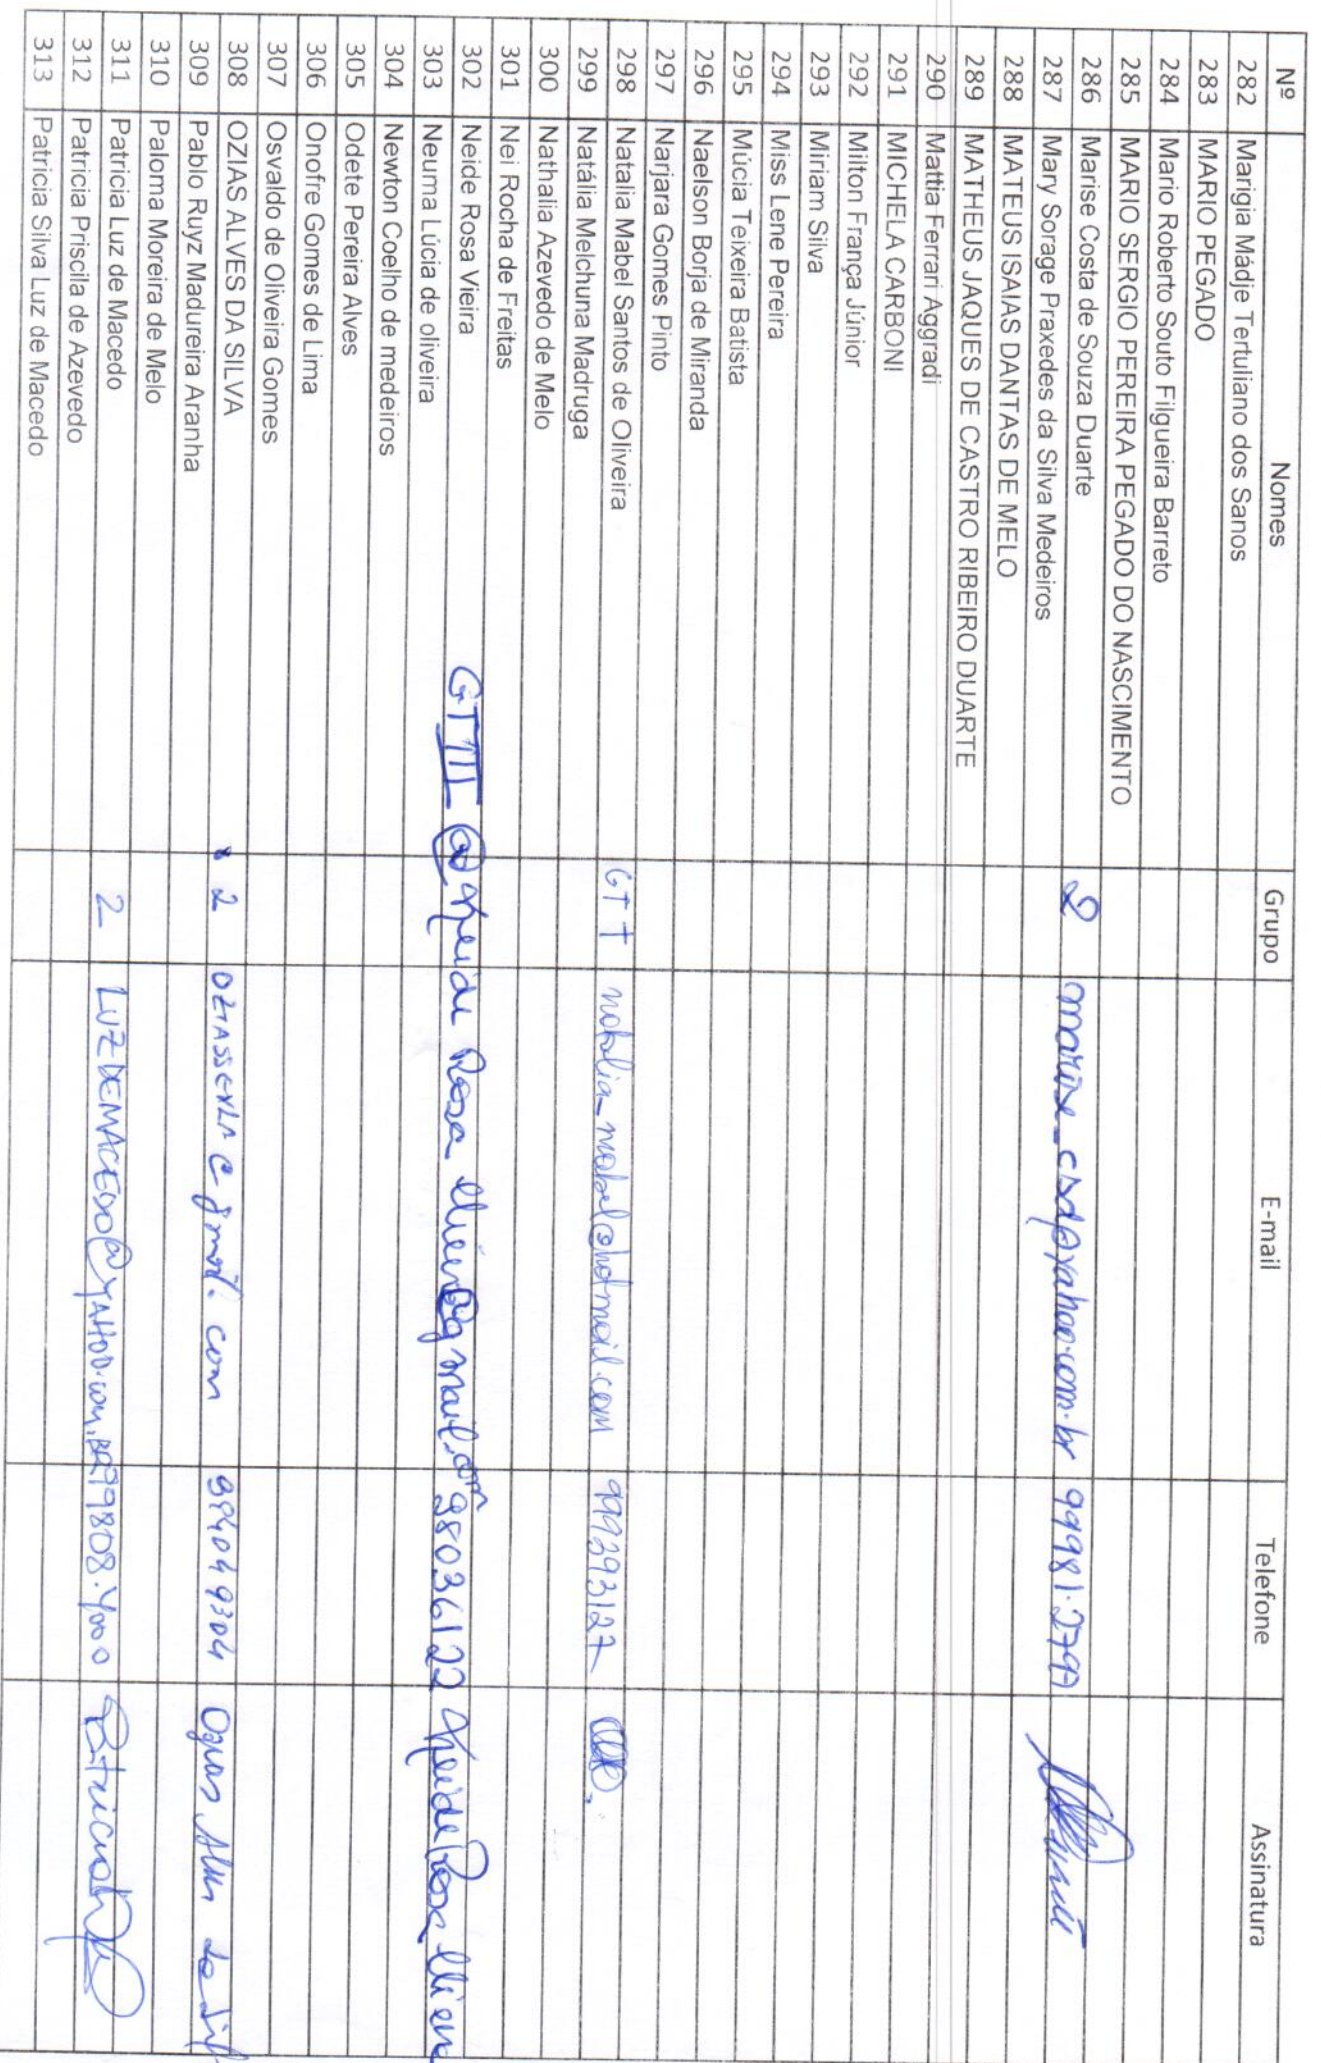 Nº Nomes Grupo E-mail Telefone Assinatura
282 Marigia Mádje Tertuliano dos Sanos
283 MARIO PEGADO
284 Mario Roberto Souto Filgueira Barreto
285 MARIO SERGIO PEREIRA PEGADO DO NASCIMENTO
286 Marise Costa de Souza Duarte 2 marise_csd@yahoo.com.br 99981.2797
287 Mary Sorage Praxedes da Silva Medeiros
288 MATEUS ISAIAS DANTAS DE MELO
289 MATHEUS JAQUES DE CASTRO RIBEIRO DUARTE
290 Mattia Ferrari Aggradi
291 MICHELA CARBONI
292 Milton França Júnior
293 Miriam Silva
294 Miss Lene Pereira
295 Múcia Teixeira Batista
296 Naelson Borja de Miranda
297 Narjara Gomes Pinto
298 Natalia Mabel Santos de Oliveira GT natalia_mabel@hotmail.com 999393127
299 Natália Melchuna Madruga
300 Nathalia Azevedo de Melo
301 Nei Rocha de Freitas
302 Neide Rosa Vieira GTIII Neide Rosa @gmail.com 98036122 Neide Rosa
303 Neuma Lúcia de oliveira
304 Newton Coelho de medeiros
305 Odete Pereira Alves
306 Onofre Gomes de Lima
307 Osvaldo de Oliveira Gomes
308 OZIAS ALVES DA SILVA 2 gmail.com
309 Pablo Ruyz Madureira Aranha
310 Paloma Moreira de Melo
311 Patricia Luz de Macedo 2 LUZDEMACEDO@YAHOO.com.BR 99808.4000 Patricia
312 Patricia Priscila de Azevedo
313 Patricia Silva Luz de Macedo